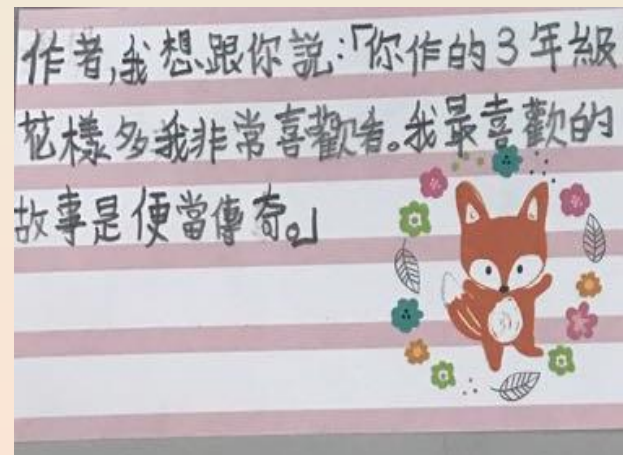 作者,我想跟你說:「你作的3年級
花樣多我非常喜歡看。我最喜歡的
故事是便當傳奇。」